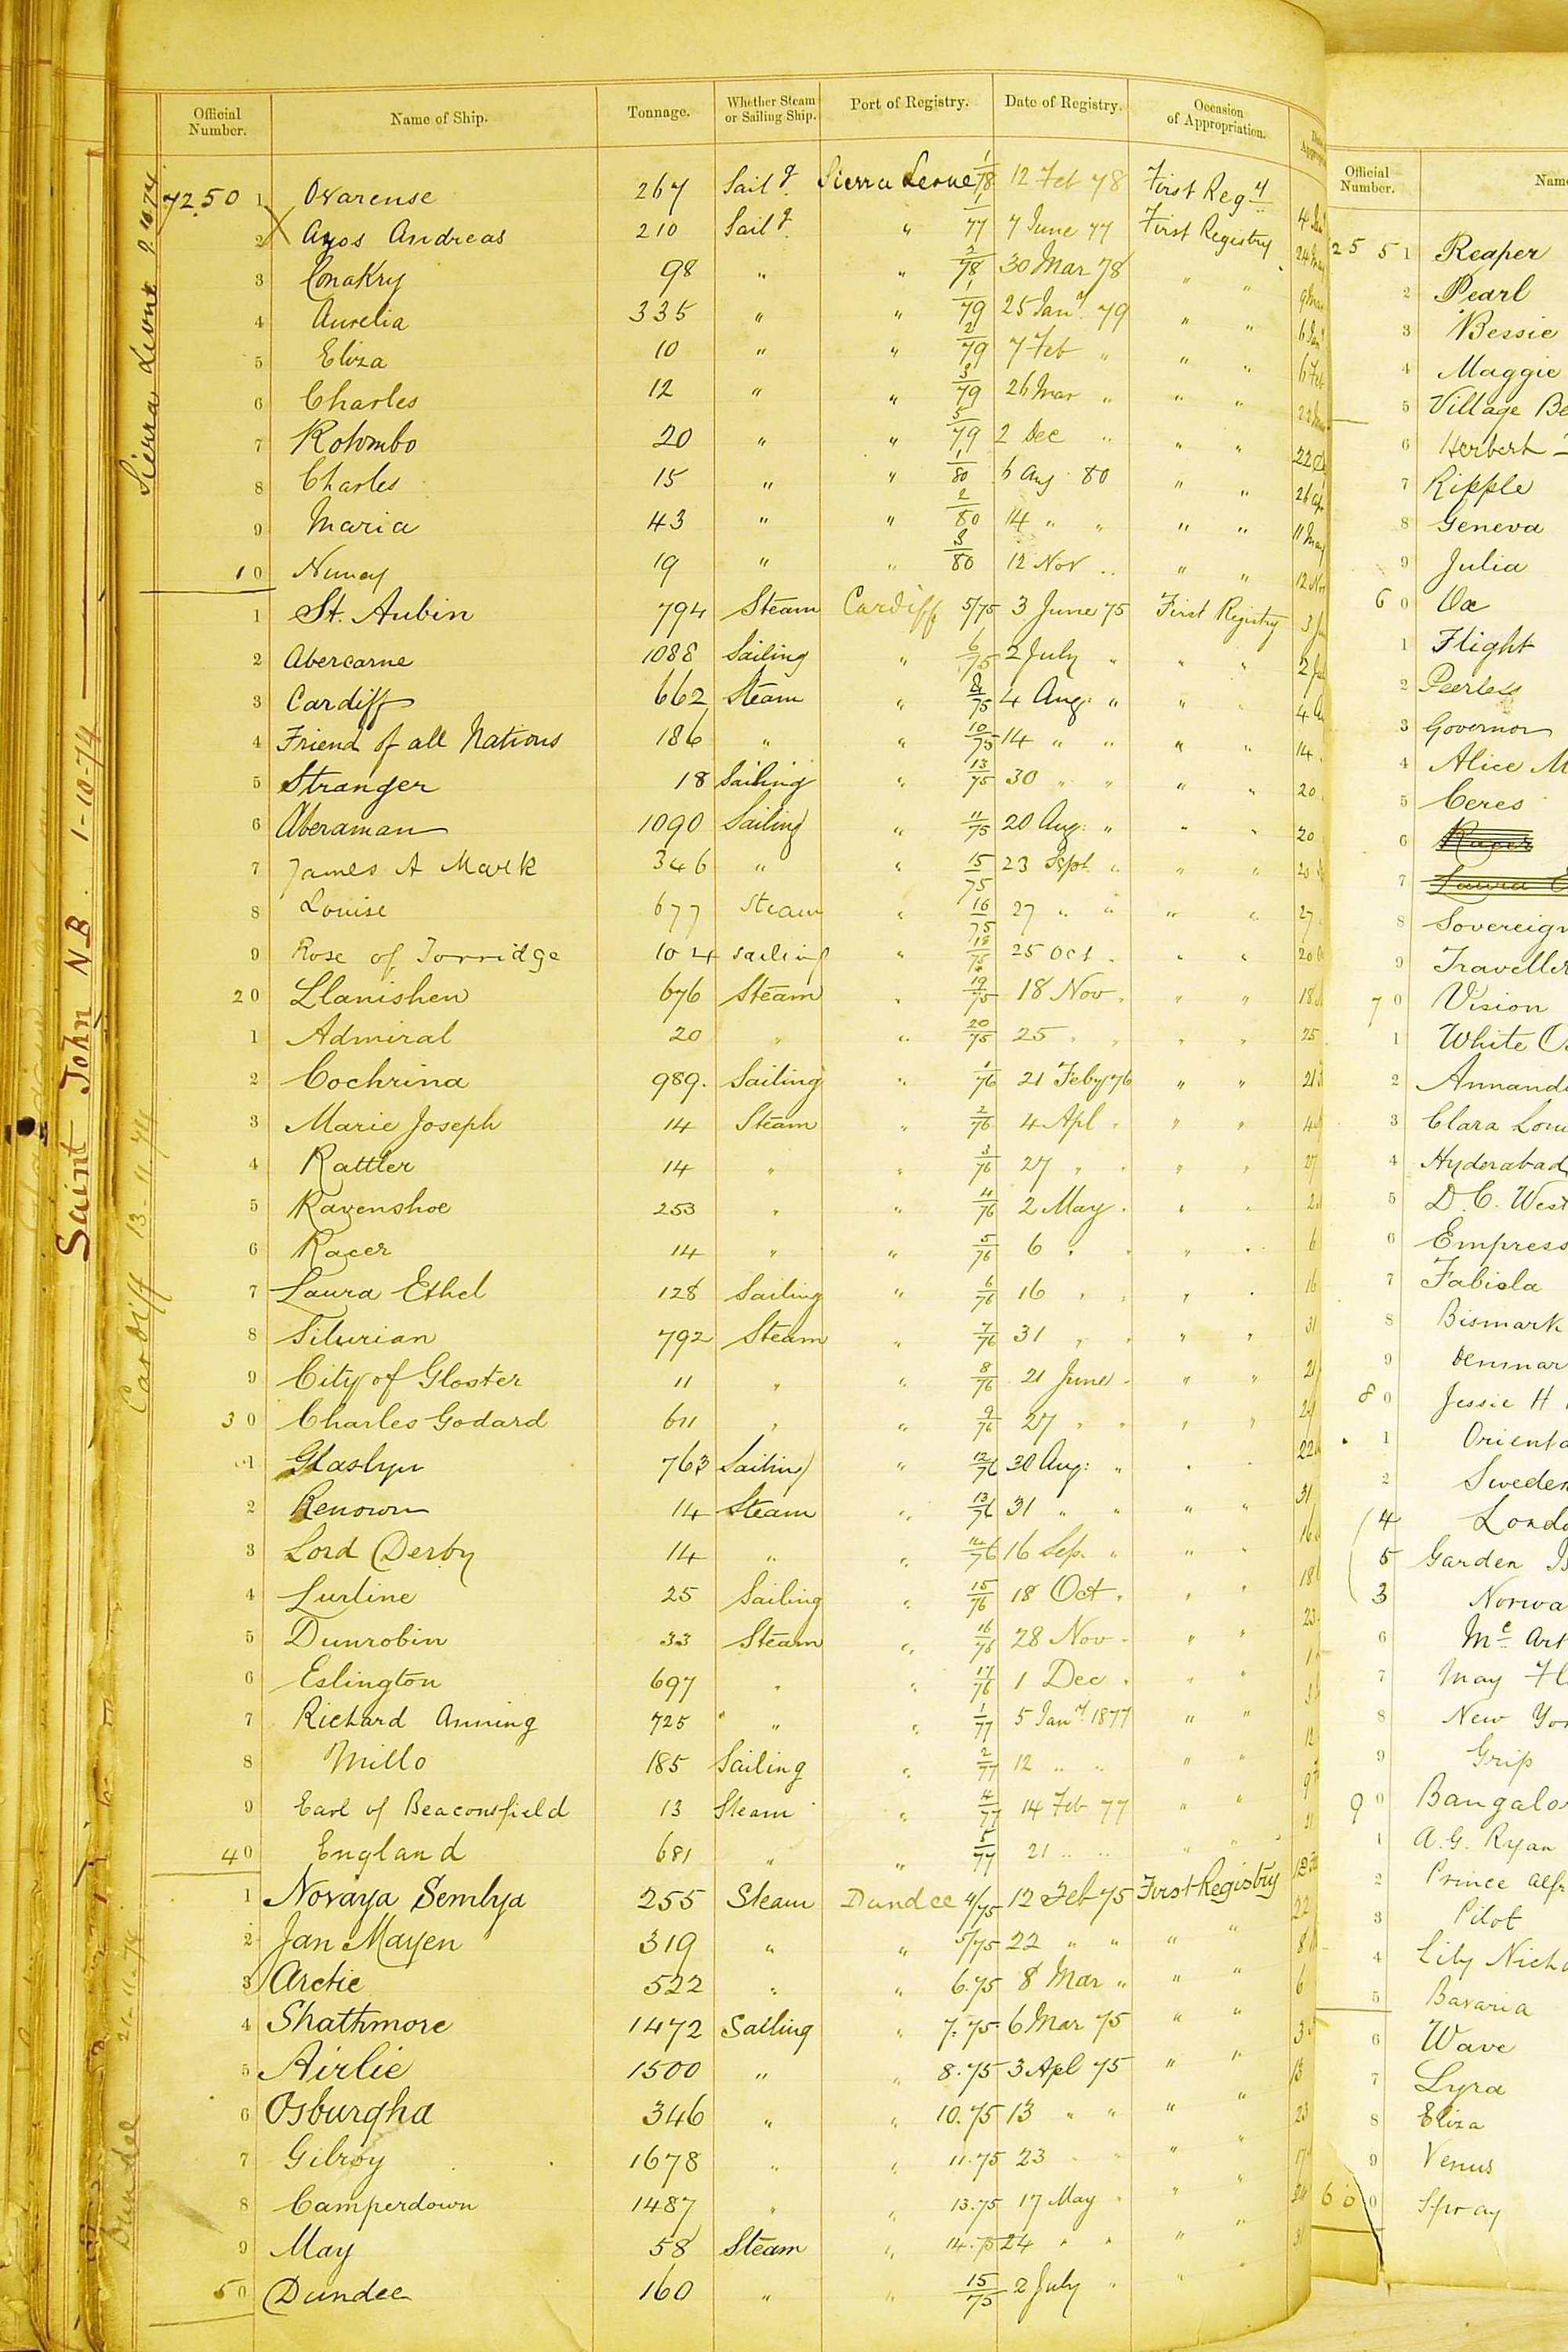 Official Number. Name of Ship. Tonnage. Whether Steam or Sailing Ship. Port of Registry. Date of Registry. Occasion of Appropriation.
7250 1 Ovarense 267 Sailg. Sierra Leone 1/78 12 Feb 78 First Regy
2 Ayos Andreas 210 Sailg. " 1/77 7 June 77 First Registry
3 Conakry 98 " " 2/78 30 Mar 78 " "
4 Aurelia 335 " " 1/79 25 Jany. 79 " "
5 Eliza 10 " " 2/79 7 Feb " " "
6 Charles 12 " " 3/79 26 Mar " " "
7 Kolombo 20 " " 5/79 2 Dec " " "
8 Charles 15 " " 1/80 6 Aug 80 " "
9 Maria 43 " " 2/80 14 " " " "
10 19 " " 3/80 12 Nov " " "
1 St. Aubin 794 Steam Cardiff 5/75 3 June 75 First Registry
2 Abercarne 1088 Sailing " 6/75 2 July " " "
3 Cardiff 662 Steam " 8/75 4 Aug: " " "
4 Friend of all Nations 186 " " 10/75 14 " " " "
5 Stranger 18 Sailing " 13/75 30 " " " "
6 Aberaman 1090 Sailing " 11/75 20 Aug: " " "
7 James A Mark 346 " " 15/75 23 Sept. " " "
8 Louise 677 Steam " 16/75 27 " " " "
9 Rose of Torridge 104 Sailing " 18/75 25 Oct " " "
20 Llanishen 676 Steam " 19/75 18 Nov " " "
1 Admiral 20 " " 20/75 25 " " " "
2 Cochrina 989. Sailing " 1/76 21 Feby 76 " "
3 Marie Joseph 14 Steam " 2/76 4 Apl " " "
4 Rattler 14 " " 3/76 27 " " " "
5 Ravenshoe 253 " " 4/76 2 May " " "
6 Racer 14 " " 5/76 6 " " " "
7 Laura Ethel 128 Sailing " 6/76 16 " " " "
8 Silurian 792 Steam " 7/76 31 " " " "
9 City of Gloster 11 " " 8/76 21 June " " "
30 Charles Godard 611 " " 9/76 27 " " " "
1 Glaslyn 763 Sailing " 12/76 30 Aug: " " "
2 Renown 14 Steam " 13/76 31 " " " "
3 Lord Derby 14 " " 14/76 16 Sep. " " "
4 Lurline 25 Sailing " 15/76 18 Oct " " "
5 Dunrobin 33 Steam " 16/76 28 Nov " " "
6 Eslington 697 " " 17/76 1 Dec " " "
7 Richard Anning 725 " " 1/77 5 Jany. 1877 " "
8 Millo 185 Sailing " 2/77 12 " " " "
9 Earl of Beaconsfield 13 Steam " 4/77 14 Feb 77 " "
40 England 681 " " 5/77 21 " " " "
1 Novaya Semlya 255 Steam Dundee 4/75 12 Feb 75 First Registry
2 Jan Mayen 319 " " 5/75 22 " " " "
3 Arctic 522 " " 6.75 8 Mar " " "
4 Strathmore 1472 Sailing " 7.75 6 Mar 75 " "
5 Airlie 1500 " " 8.75 3 Apl 75 " "
6 Osburgha 346 " " 10.75 13 " " " "
7 Gilroy 1678 " " 11.75 23 " " " "
8 Camperdown 1487 " " 13.75 17 May " " "
9 May 58 Steam " 14.75 24 " " " "
50 Dundee 160 " " 15/75 2 July " " "
Sierra Leone 9.10.74
Saint John NB. 1-10-74
Cardiff 13-11-74
Dundee 21-11-74
Official Number.
255 1 Reaper
2 Pearl
3 Bessie
4 Maggie
5 Village
6 Herbert
7 Ripple
8 Geneva
9 Julia
60 Ox
1 Flight
2 Peerless
3 Governor
4 Alice
5 Ceres
6 Racer
7 Laura
8 Sovereign
9 Traveller
70 Vision
1 White
2
3 Clara
4 Hyderabad
5 D. C. West
6 Empress
7 Fabiola
8 Bismark
9
80 Jessie H
1
2 Sweden
4
5 Garden
3
6 Mc
7 May
8 New
9 Grip
90
1 A. G. Ryan
2 Prince
3 Pilot
4 Lily
5 Bavaria
6 Wave
7 Lyra
8 Eliza
9 Venus
600 Spray